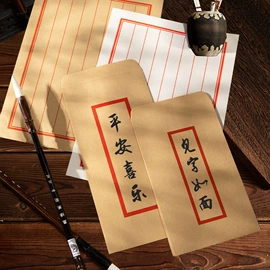 平安喜乐
见字如面